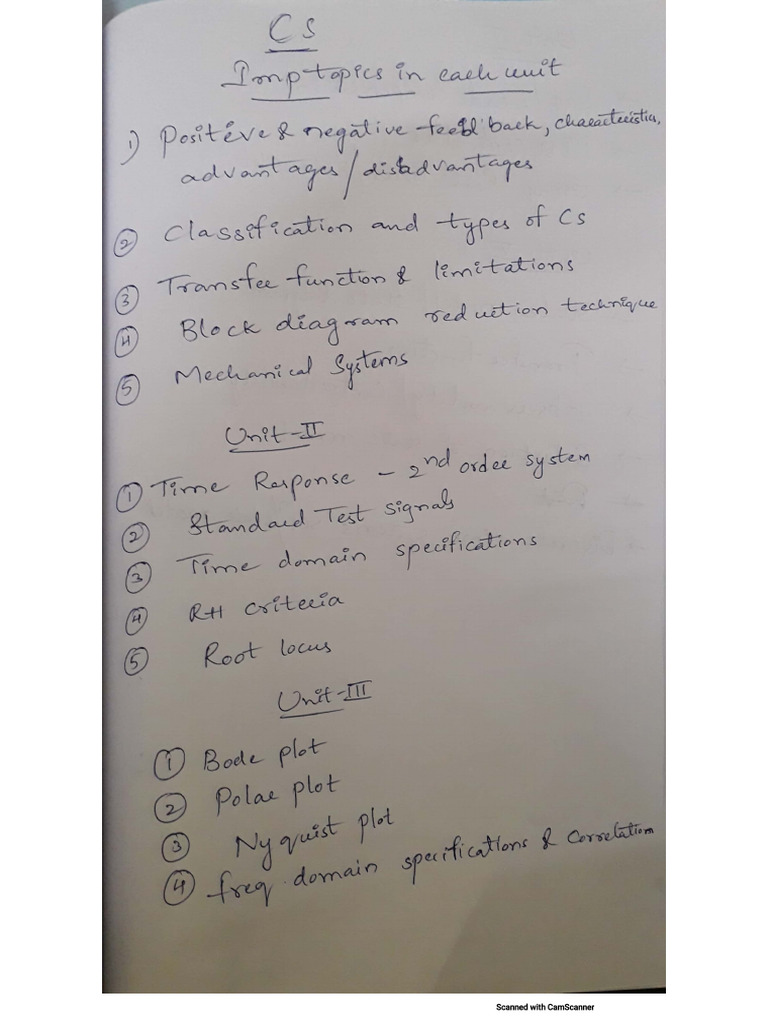 CS
Imp topics in each unit
1) Positive & negative feed back, characteristics,
advantages/disadvantages
② Classification and types of Cs
③ Transfer function & limitations
④ Block diagram reduction technique
⑤ Mechanical Systems
Unit-II
① Time Response - 2nd order system
② Standard Test signals
③ Time domain specifications
④ RH criteria
⑤ Root locus
Unit-III
① Bode plot
② Polar plot
③ Nyquist plot
④ freq domain specifications & Correlation
Scanned with CamScanner